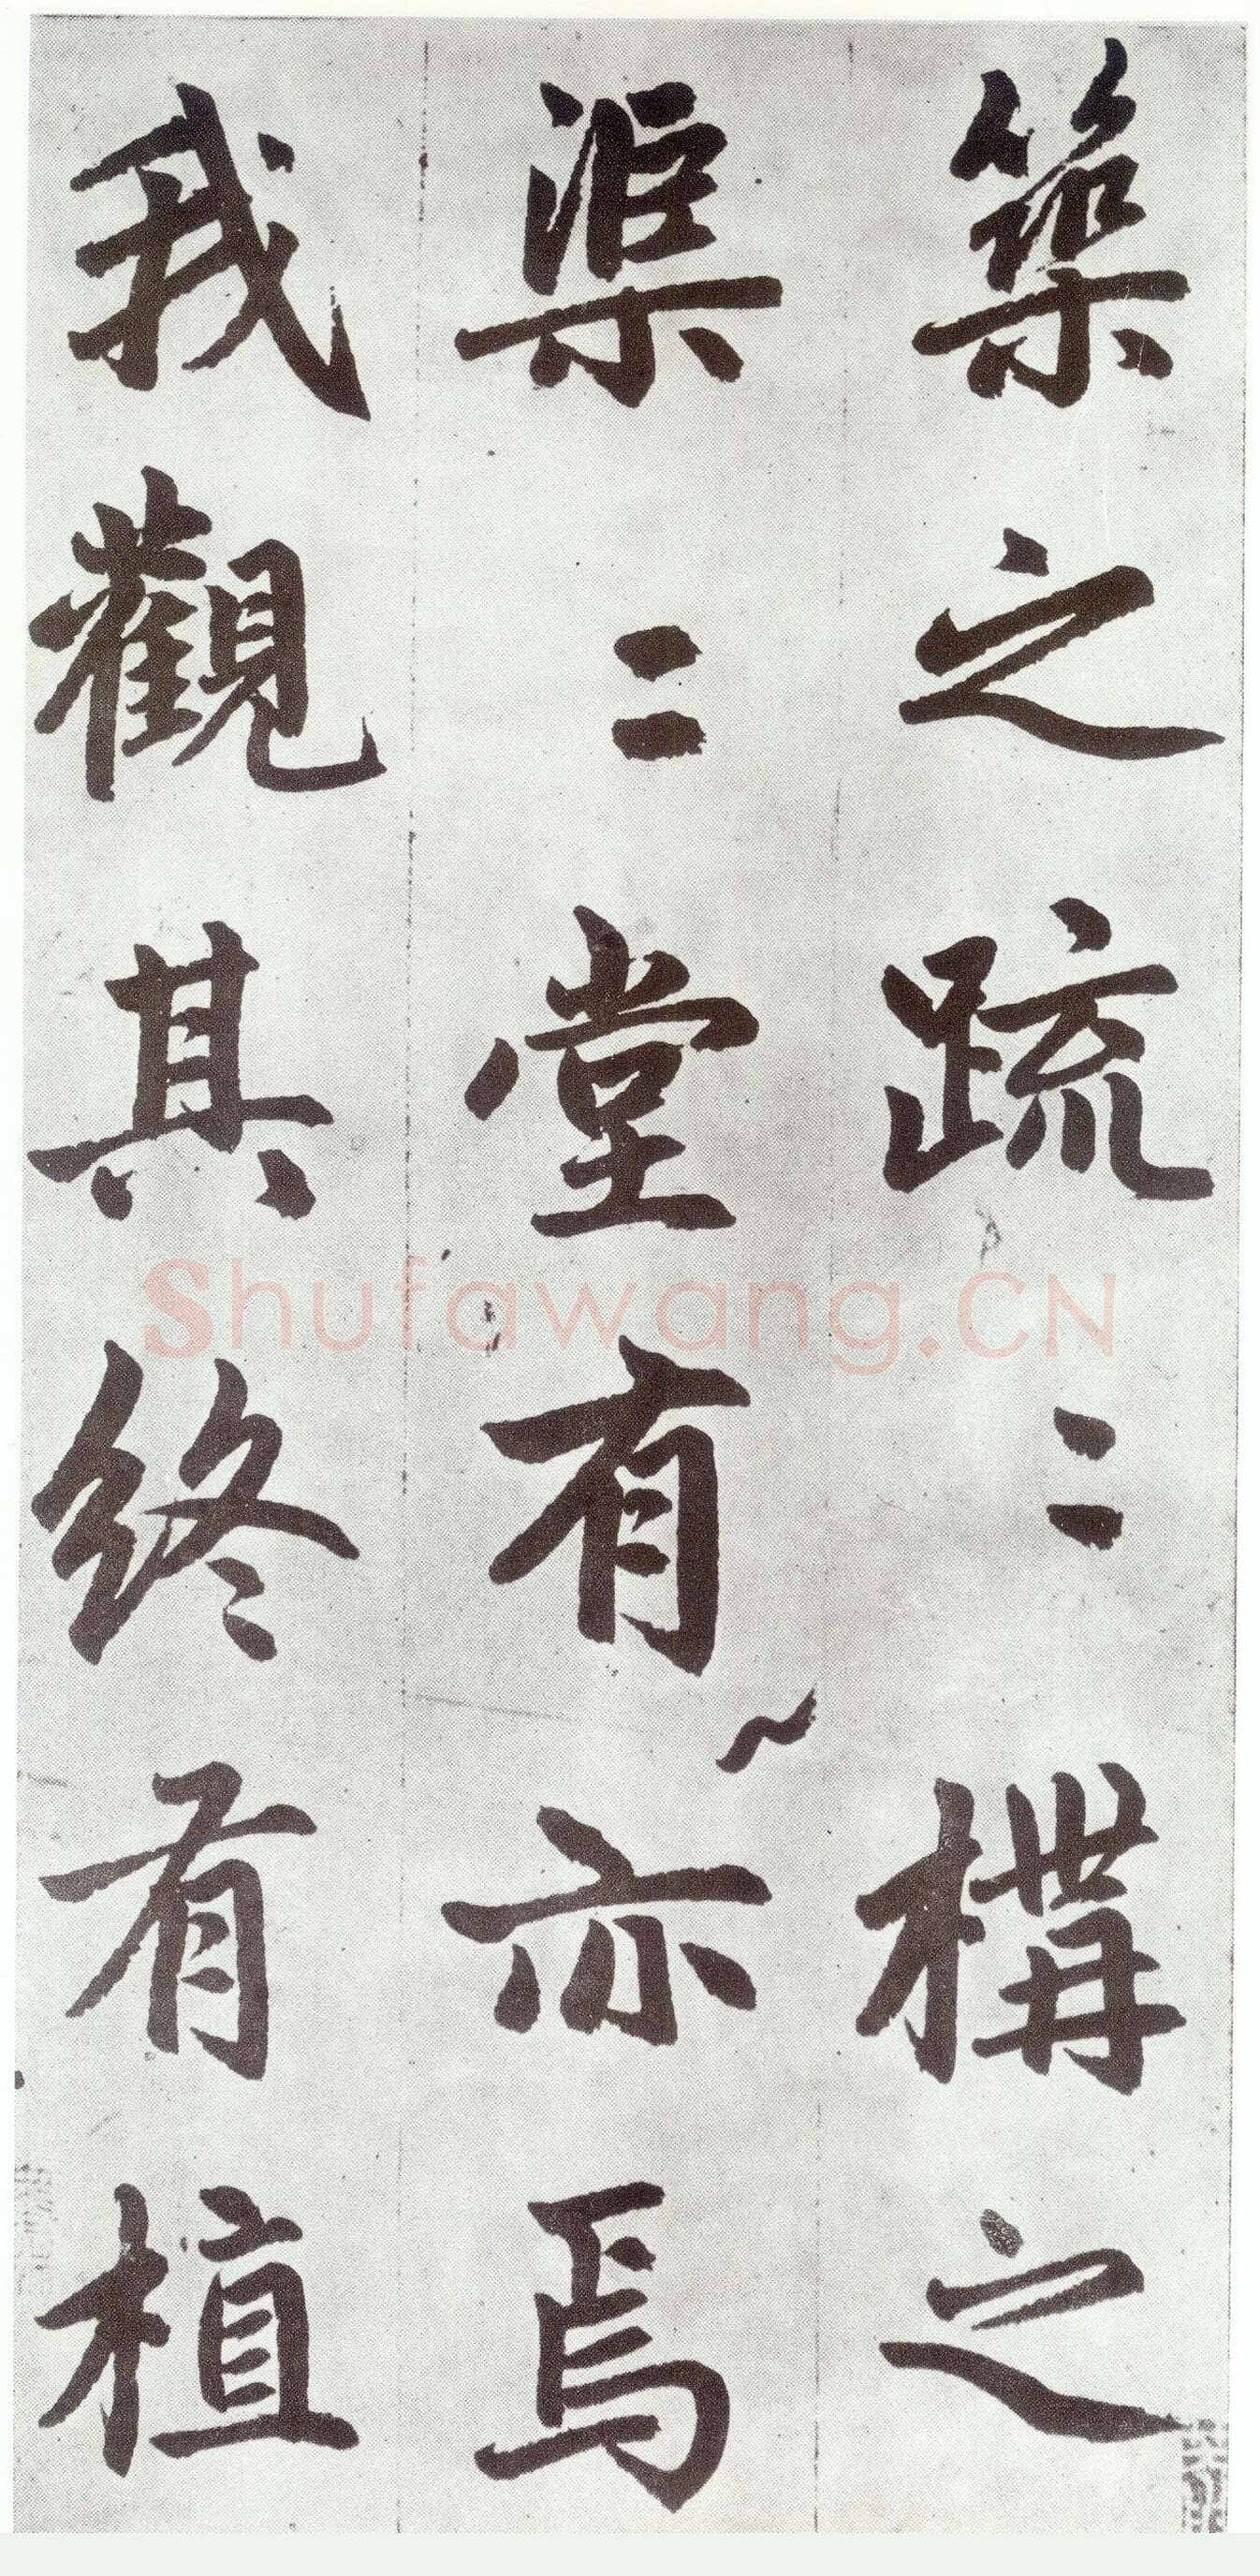 築之疏〻構之
渠〻堂有亦焉
我觀其終有植
Shufawang.CN